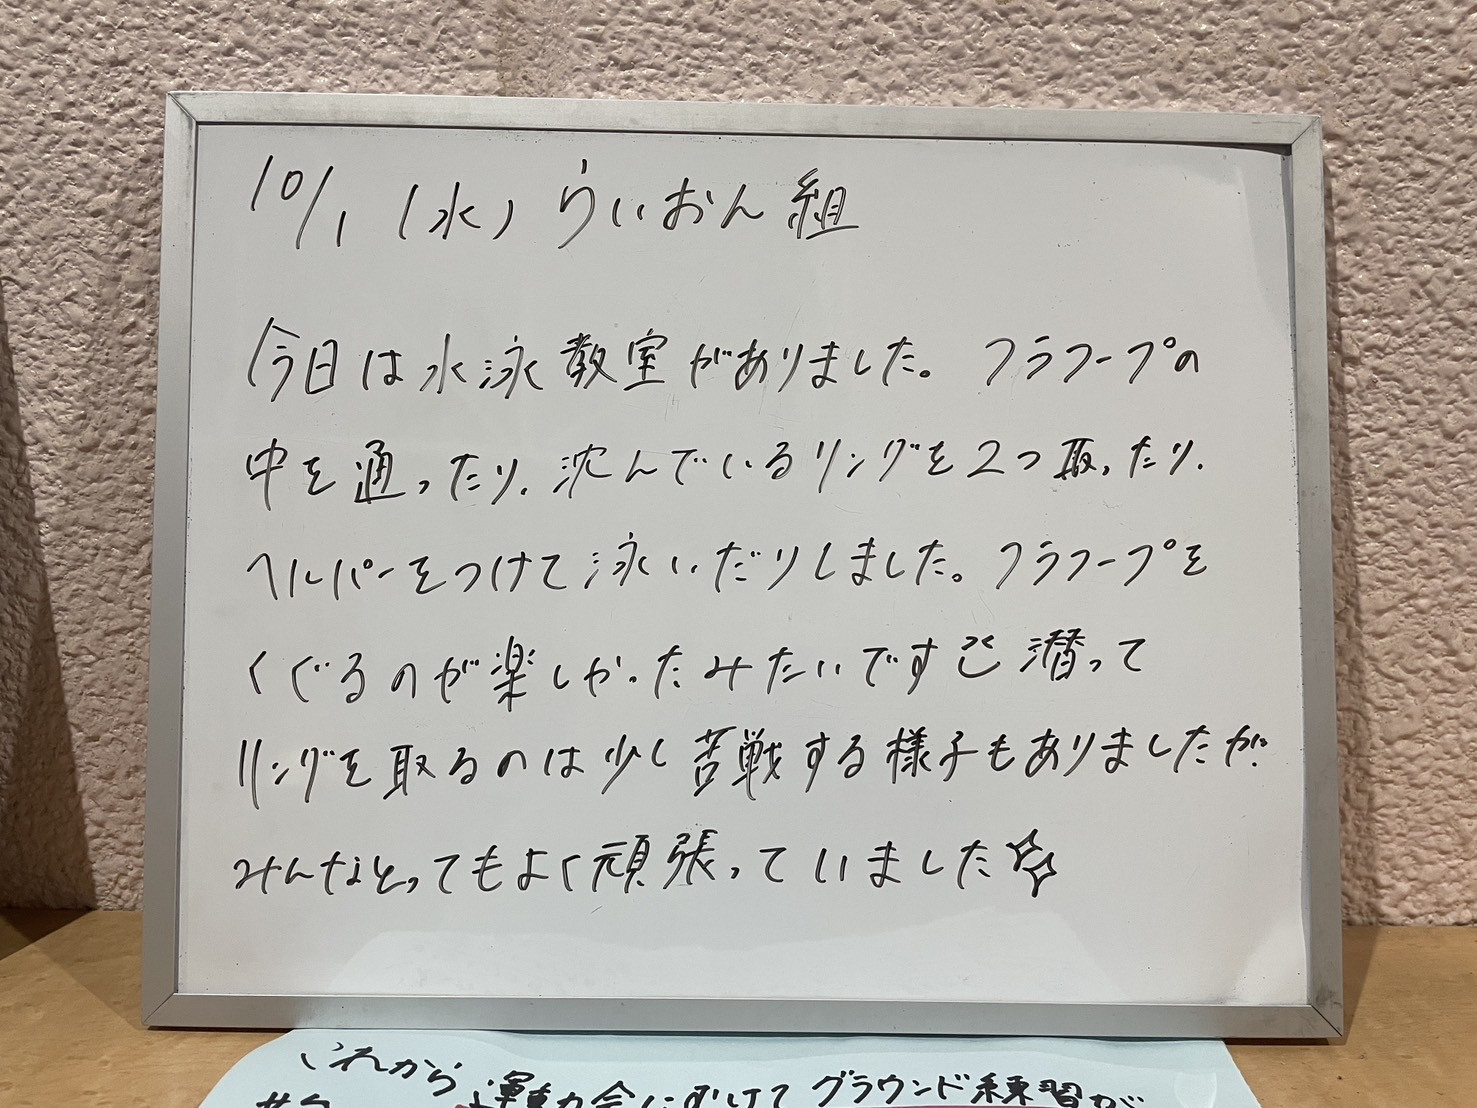 10/1 (水) らいおん組
今日は水泳教室がありました。フラフープの
中を通ったり、沈んでいるリングを2つ取ったり、
ヘルパーをつけて泳いだりしました。フラフープを
くぐるのが楽しかったみたいです 潜って
リングを取るのは少し苦戦する様子もありましたが、
みんなとってもよく頑張っていました
これから
運動会にむけて グラウンド練習が